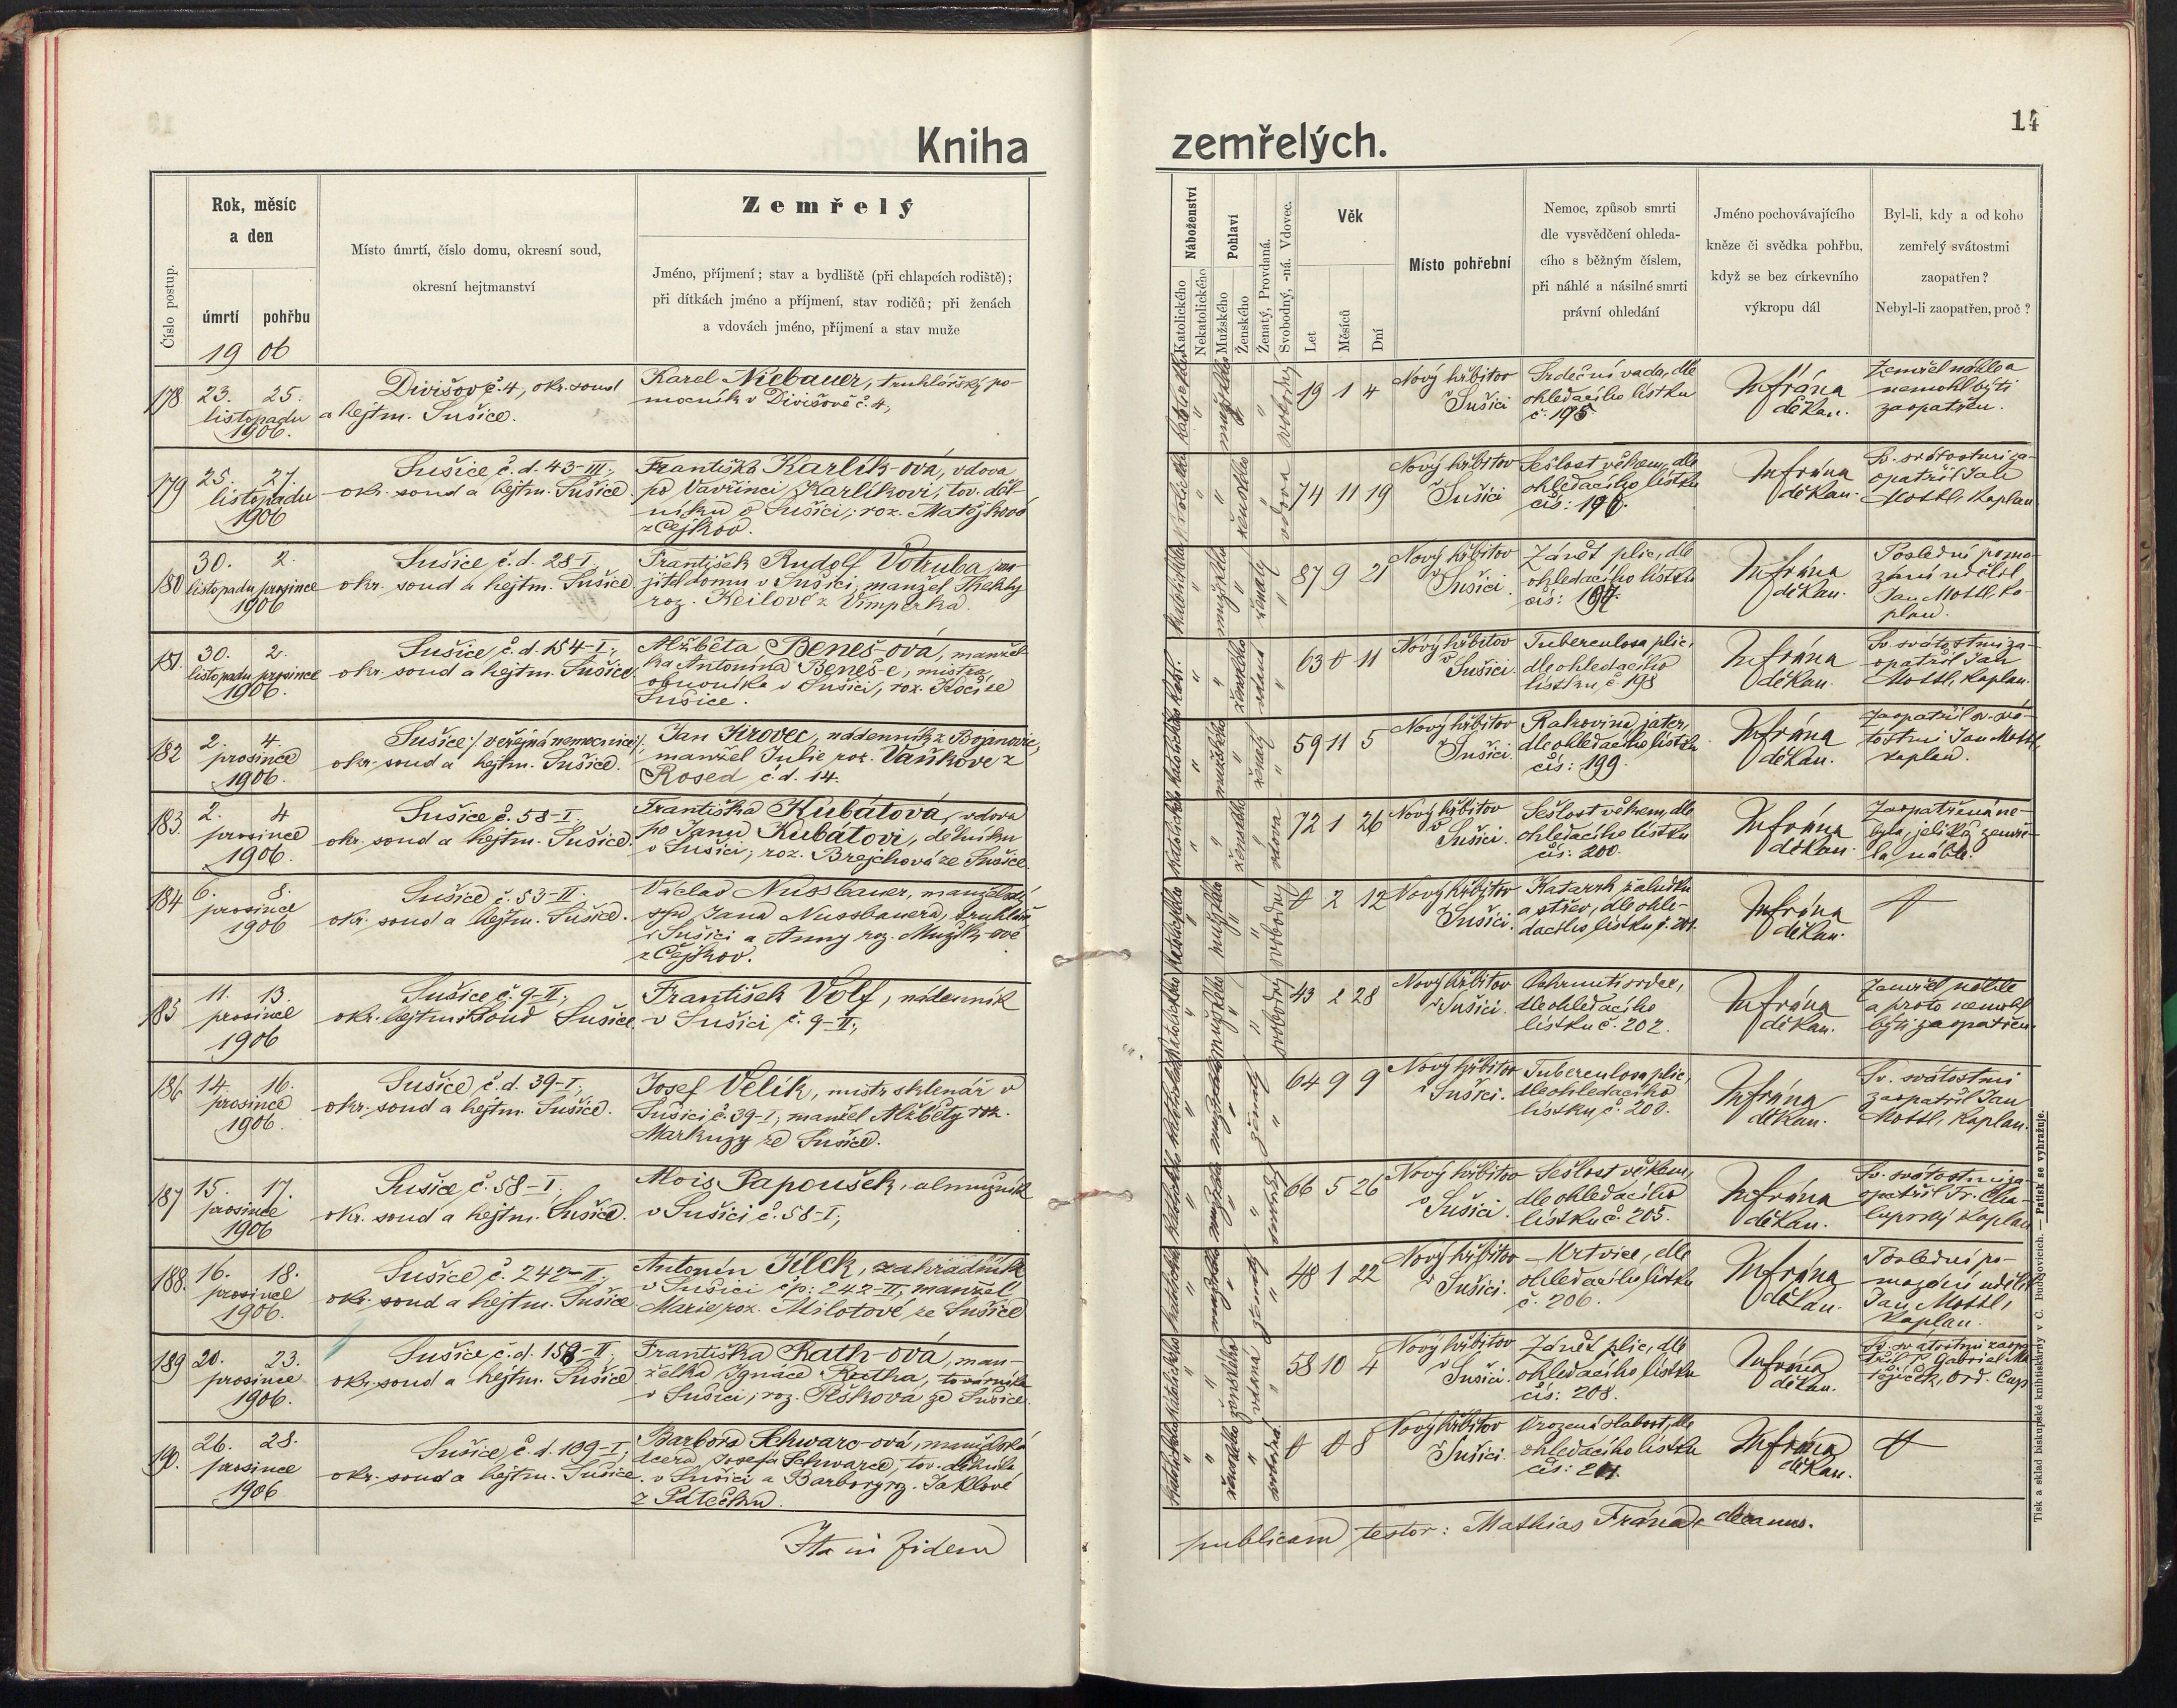 Kniha
zemřelých.
14
Číslo postup.
Rok, měsíc
a den
úmrtí
pohřbu
19 06
Místo úmrtí, číslo domu, okresní soud,
okresní hejtmanství
Zemřelý
Jméno, příjmení; stav a bydliště (při chlapcích rodiště);
při dítkách jméno a příjmení, stav rodičů; při ženách
a vdovách jméno, příjmení a stav muže
Náboženství
Katolického
Nekatolického
Pohlaví
Mužského
Ženského
Ženatý, Provdaná.
Svobodný, -ná. Vdovec.
Věk
Let
Měsíců
Dní
Místo pohřební
Nemoc, způsob smrti
dle vysvědčení ohleda-
cího s běžným číslem,
při náhlé a násilné smrti
právní ohledání
Jméno pochovávajícího
kněze či svědka pohřbu,
když se bez církevního
výkropu dál
Byl-li, kdy a od koho
zemřelý svátostmi
zaopatřen?
Nebyl-li zaopatřen, proč?
178
23. 25.
listopadu
1906.
Divišov č. 4, okr. soud
a hejtm. Sušice.
Karel Niebauer, truhlářský po-
mocník v Divišově č. 4,
katolického
mužského
svobodný
19 1 4
Nový hřbitov
v Sušici
Srdeční vada, dle
ohledacího lístku
č. 195
M Frána
děkan.
Zemřel náhle a
nemohl býti
zaopatřen.
179
25. 27.
listopadu
1906
Sušice, č. d. 43-III.,
okr. soud a hejtm. Sušice.
Františka Karlík-ová, vdova
po Vavřinci Karlíkovi, tov. děl-
níku v Sušici, roz. Matějková
z Čejkov.
katolického
ženského
vdova
74 11 19
Nový hřbitov
v Sušici
Sešlost věkem, dle
ohledacího lístku
čís: 196.
M Frána
děkan.
Sv. svátostmi za-
opatřil Jan
Mottl, kaplan.
180
30. 2.
listopadu prosince
1906
Sušice č. d. 28-I.
okr. soud a hejtm. Sušice
František Rudolf Votruba, ma-
jitel domu v Sušici, manžel Thekly
roz. Keilové z Vimperka.
katolického
mužského
ženatý
87 9 21
Nový hřbitov
v Sušici.
Zánět plic, dle
ohledacího lístku
čís: 197.
M Frána
děkan.
Poslední poma-
zání udělil
Jan Mottl, ka-
plan.
181.
30. 2.
listopadu prosince
1906.
Sušice, č. d. 154-I.,
okr. soud a hejtm. Sušice.
Alžběta Beneš-ová, manžel-
ka Antonína Beneše, mistra
obuvníka v Sušici, roz. Kočí ze
Sušice.
katol.
ženského
vdaná
63 0 11
Nový hřbitov
v Sušici.
Tuberculosa plic,
dle ohledacího
lístku, č. 198
M Frána
děkan.
Sv. svátostmi za-
opatřil Jan
Mottl, kaplan.
182
2. 4.
prosince
1906.
Sušice /: veřejná nemocnice :/
okr. soud a hejtm. Sušice.
Jan Jirovec, nádenník z Bojanovic,
manžel Julie roz. Vaňkové z
Rosed č. d. 14.
katolického
mužského
ženatý
59 11 5
Nový hřbitov
v Sušici.
Rakovina jater,
dle ohledacího lístku
čís: 199.
M Frána
děkan.
Zaopatřil sv. svá-
tostmi Jan Mottl,
kaplan.
183.
2. 4
prosince
1906.
Sušice č. 58-I.
okr. soud a hejtm. Sušice.
Františka Kubátová, vdova
po Janu Kubátovi, dělníku
v Sušici, roz. Brejchová ze Sušice
katolického
ženského
vdova
72 1 26
Nový hřbitov
v Sušici.
Sešlost věkem, dle
ohledacího lístku
čís: 200.
M Frána
děkan
Zaopatřena ne-
byla, jelikož zemře-
la náhle.
184
6. 8.
prosince
1906
Sušice č. 53-II.
okr. soud a hejtm. Sušice.
Václav Nussbauer, manželský
syn Jana Nussbauera, truhláře
v Sušici a Anny roz. Mužík-ové
z Čejkov.
katolického
mužského
svobodný
0 2 12
Nový hřbitov
v Sušici.
Katarrh žaludku
a střev, dle ohle-
dacího lístku, č. 201.
M Frána
děkan.
0
185
11. 13.
prosince
1906
Sušice č. 9-II.,
okr. hejtm. i soud Sušice.
František Volf, nádenník
v Sušici č. 9-II.,
katolického
mužského
svobodný
43 2 28
Nový hřbitov
v Sušici.
Ochrnutí srdce,
dle ohledacího
lístku č. 202.
M Frána
děkan.
Zemřel náhle
a proto nemohl
býti zaopatřen.
186
14. 16.
prosince
1906.
Sušice č. d. 39-I.,
okr. soud a hejtm. Sušice.
Josef Velík, mistr sklenář v
Sušici č. 39-I., manžel Alžběty roz.
Markuzy ze Sušice.
katolického
mužského
ženatý
64 9 9
Nový hřbitov
v Sušici.
Tuberculosa plic,
dle ohledacího
lístku, č. 203.
M Frána
děkan.
Sv. svátostmi
zaopatřil Jan
Mottl, kaplan.
187
15. 17.
prosince
1906
Sušice, č. 58-I.
okr. soud a hejtm. Sušice.
Alois Papoušek, almužník
v Sušici č. 58-I.,
katolického
mužského
66 5 26
Nový hřbitov
v Sušici.
Sešlost věkem,
dle ohledacího
lístku č. 205.
M Frána
děkan.
Sv. svátostmi za-
opatřil Fr. Cha-
lupský kaplan
188.
16. 18.
prosince
1906.
Sušice, č. 242-II.,
okr. soud a hejtm. Sušice
Antonín Jílek, zahradník
v Sušici čp: 242-II., manžel
Marie roz. Milotové ze Sušice
katolického
mužského
ženatý
48 1 22
Nový hřbitov
v Sušici.
Mrtvice, dle
ohledacího lístku
č. 206.
M Frána
děkan.
Poslední po-
mazání udělil
Jan Mottl,
kaplan.
189
20. 23.
prosince
1906.
Sušice, č. d. -II.
okr. soud a hejtm. Sušice
Františka Rath-ová, man-
želka Ignáce Ratha, továrníka
v Sušici, roz. ze Sušice.
katolického
ženského
vdaná
58 10 4
Nový hřbitov
v Sušici.
Zánět plic, dle
ohledacího lístku
čís: 208.
M Frána
děkan.
Sv. svátostmi zaopa-
třil P. Gabriel
Ord. Cap
190.
26. 28.
prosince
1906
Sušice, č. d. 109-I.,
okr. soud a hejtm. Sušice
Barbora Schwarc-ová, manželská
dcera Josefa Schwarce, tov. dělníka
v Sušici a Barbory roz. Jaklové
z Pátečku.
katolického
ženského
svobodná
0 0 8
Nový hřbitov
v Sušici.
Vrozená slabost, dle
ohledacího lístku
čís: 211.
M Frána
děkan.
0
Ita in fidem
publicam testor: Mathias Frána, decanus.
Tisk a sklad biskupské knihtiskárny v Č. Budějovicích. — Patisk se vyhražuje.